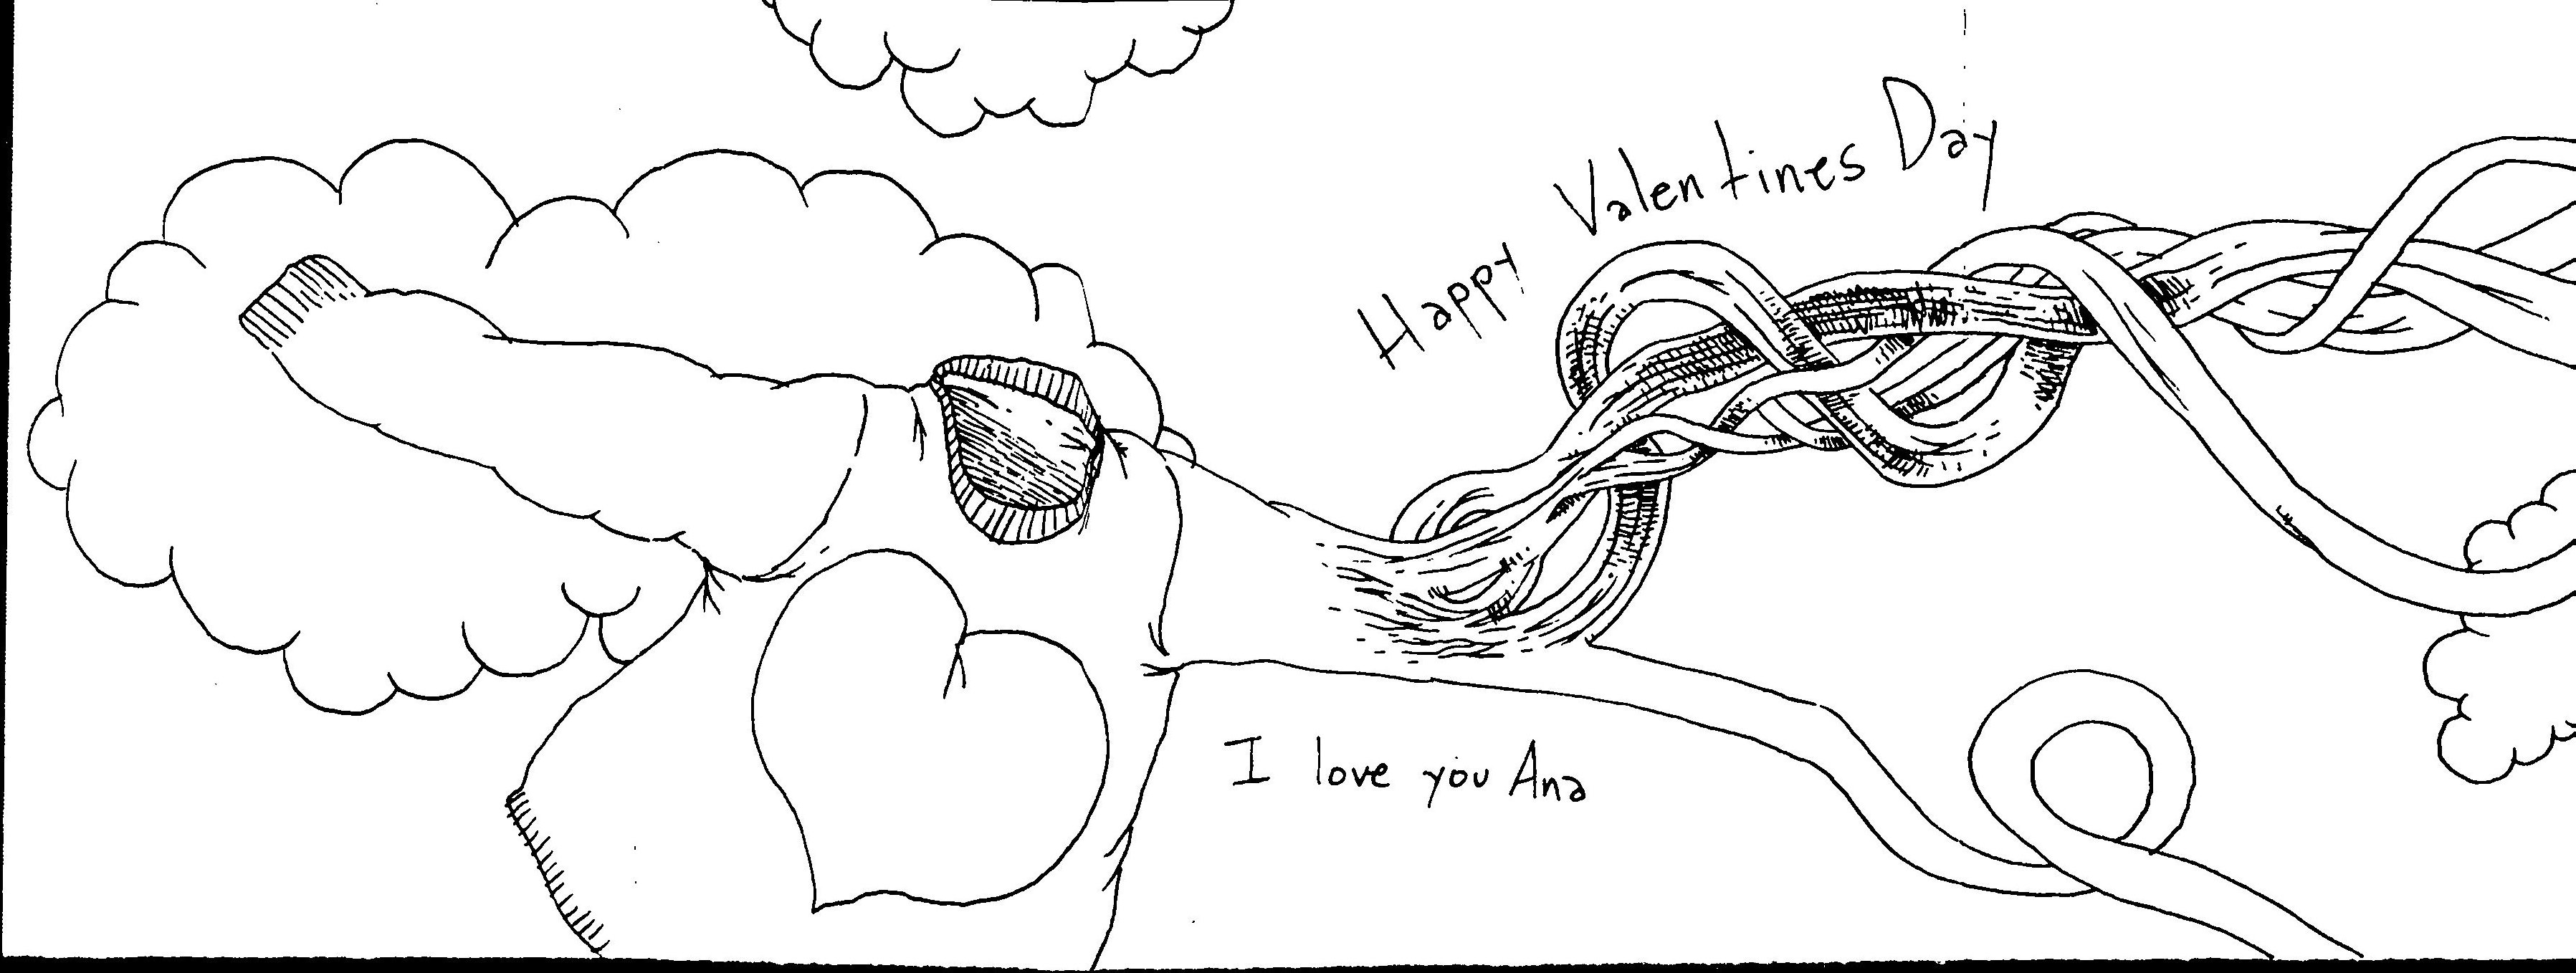 Happy Valentines Day
I love you Ana